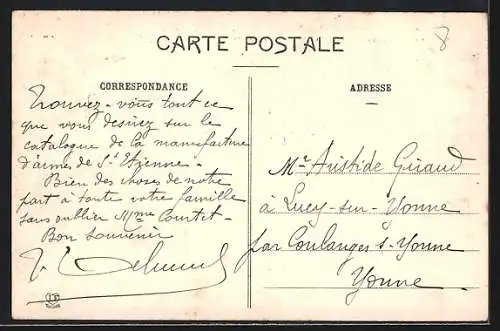 CARTE POSTALE
8
CORRESPONDANCE
Trouvez-vous tout ce
que vous desirez sur le
catalogue de la manufacture
d'armes de St Etienne.
Bien des choses de notre
part à toute votre famille
sans oublier Mme Courtet.
Bon souvenir
ADRESSE
Mr Aristide Giraud
à Lucy-sur-Yonne
par Coulanges s-Yonne
Yonne